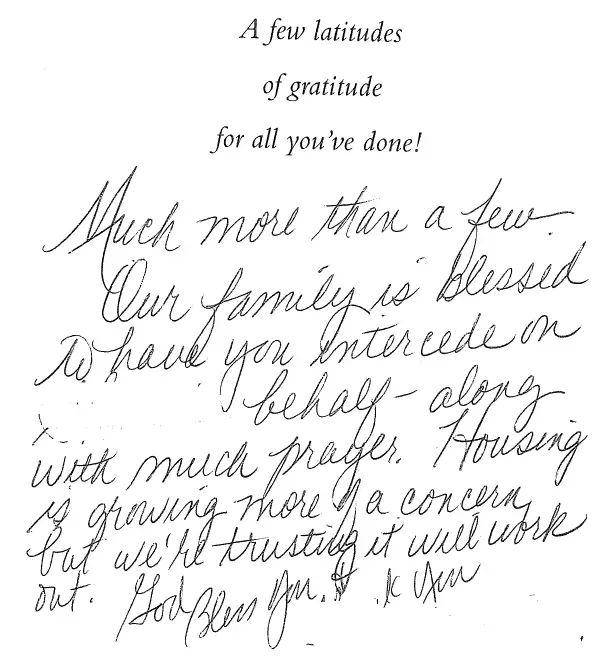 A few latitudes
of gratitude
for all you've done!
Much more than a few.
Our family is blessed
to have you intercede on
behalf - along
with much prayer. Housing
is growing more of a concern,
but we're trusting it will work
out. God Bless You.